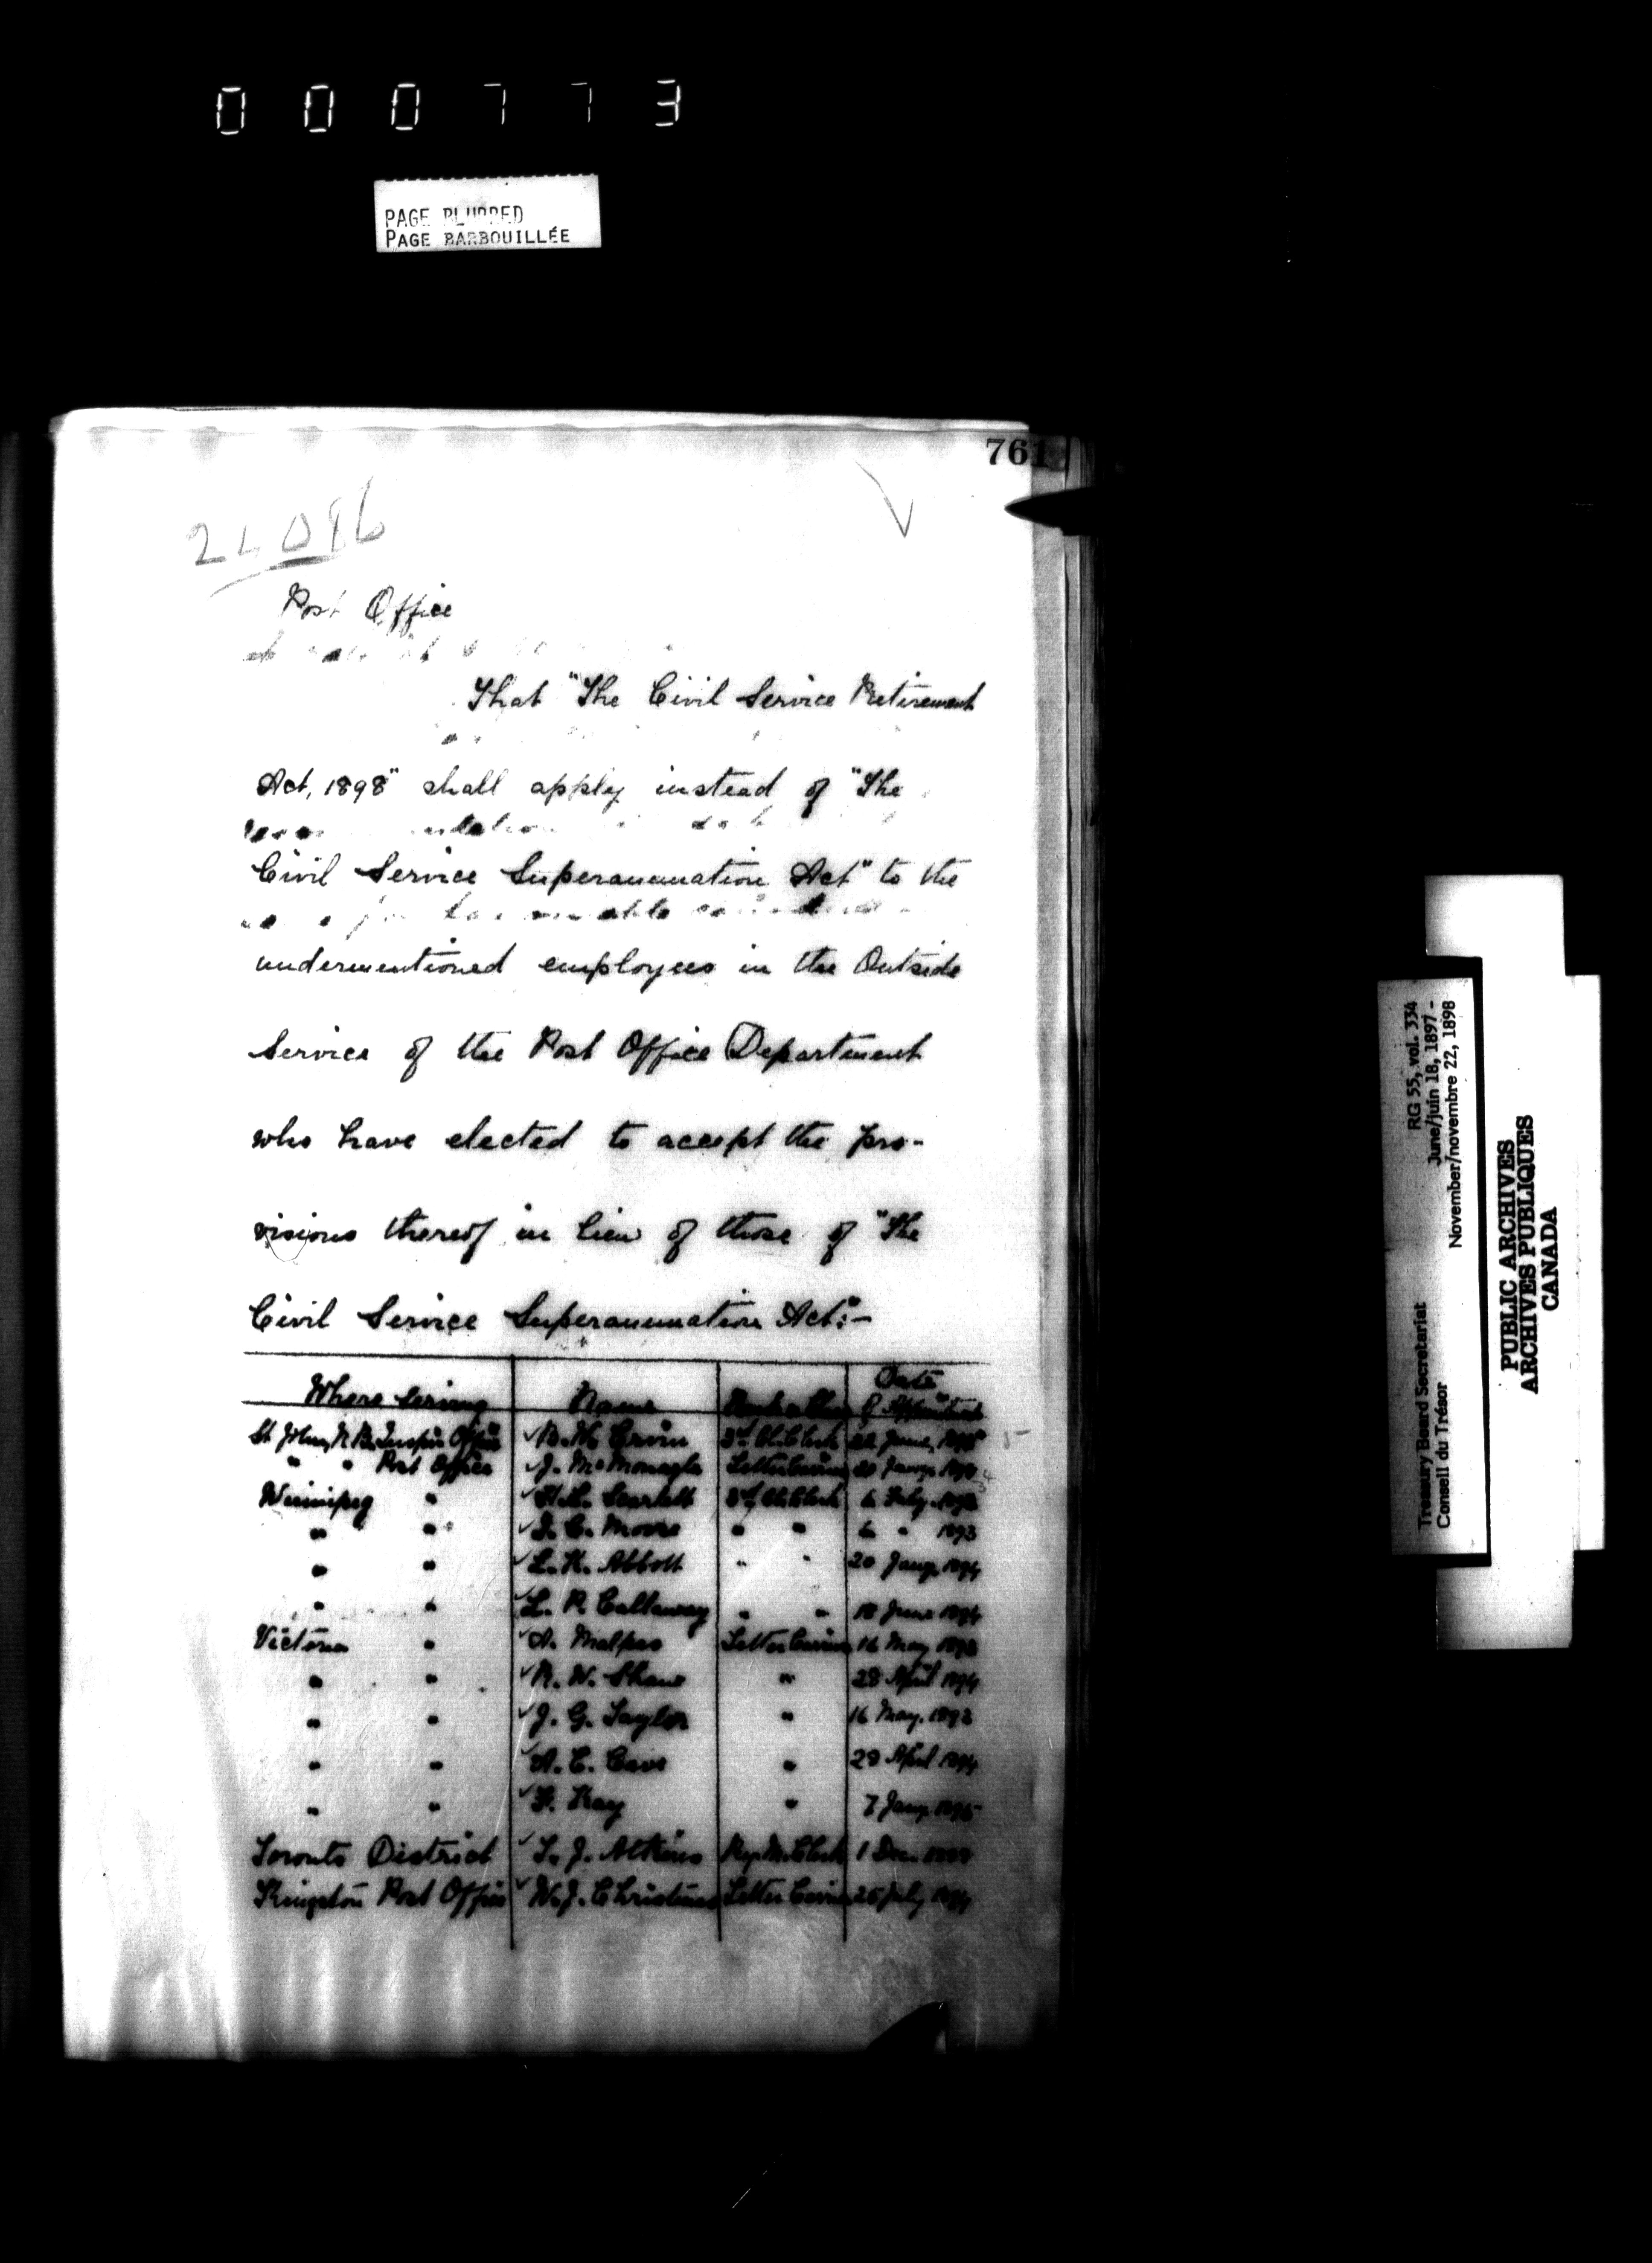 000773
PAGE BLURRED
PAGE BARBOUILLÉE
761
Post Office
That "The Civil Service Retirement
Act, 1898" shall apply instead of "The
Civil Service Superannuation Act" to the
undermentioned employees in the Outside
Service of the Post Office Department
who have elected to accept the pro-
visions thereof in lieu of those of "The
Civil Service Superannuation Act":-
Where Serving Name Rank or Class Date of Appointment
St John, N.B. Inspr's Office B. H. Ervin 3rd Cl. Clerk 22 June
" " Post Office J. McMonagle Letter Carrier 20 Jany.
Winnipeg " Scarlett 3rd Cl. Clerk 6 July
" " C. Moore " " 6 " 1893
" " L. K. Abbott " " 20 Jany. 1894
" " L. R. Callaway " " 18 June 1894
Victoria " A. Malpas Letter Carrier 16 May 1893
" " R. W. Shaw " 28 April 1894
" " J. G. Taylor " 16 May. 1893
" " A. C. Cave " 28 April 1894
" " F. Kay " 7 Jany. 1895
Toronto District J. Atkins Ry. M. Clerk 1 Dec.
Kingston Post Office W. J. Christmas Letter Carrier 25 July 1894
RG 55, vol. 334
June/juin 18, 1897 -
November/novembre 22, 1898
Treasury Board Secretariat
Conseil du Trésor
PUBLIC ARCHIVES
ARCHIVES PUBLIQUES
CANADA